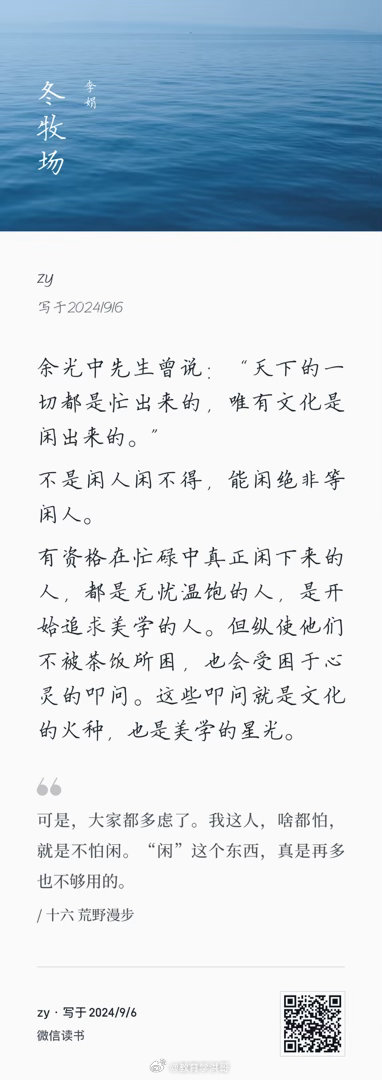 冬牧场
李娟
zy
写于2024/9/6
余光中先生曾说：“天下的一
切都是忙出来的，唯有文化是
闲出来的。”
不是闲人闲不得，能闲绝非等
闲人。
有资格在忙碌中真正闲下来的
人，都是无忧温饱的人，是开
始追求美学的人。但纵使他们
不被茶饭所困，也会受困于心
灵的叩问。这些叩问就是文化
的火种，也是美学的星光。
可是，大家都多虑了。我这人，啥都怕，
就是不怕闲。“闲”这个东西，真是再多
也不够用的。
/ 十六 荒野漫步
zy · 写于 2024/9/6
微信读书